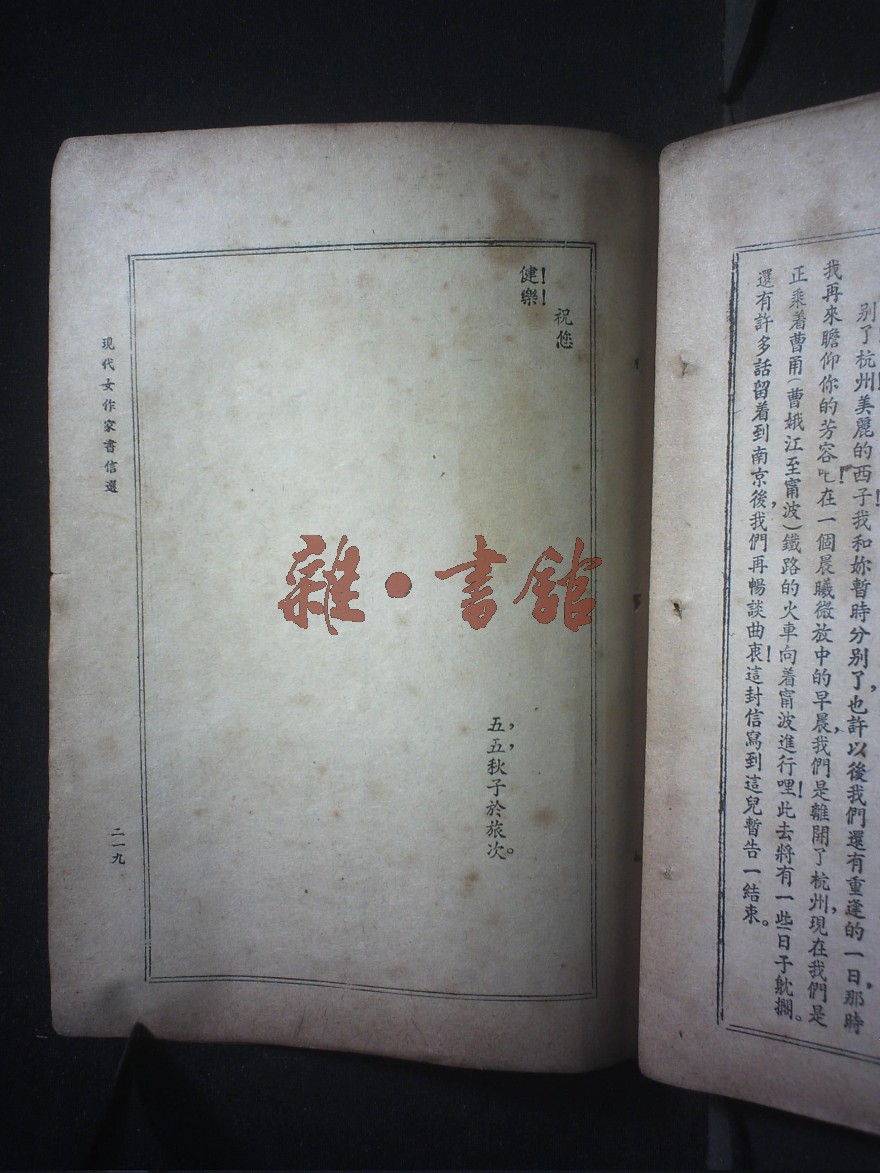 別了杭州美麗的西子!我和妳暫時分別了,也許以後我們還有重逢的一日,那時
我再來瞻仰你的芳容吧!在一個晨曦微放中的早晨,我們是離開了杭州,現在我們是
正乘着曹甬(曹娥江至甯波)鐵路的火車向着甯波進行哩!此去將有一些日子躭擱。
還有許多話留着到南京後,我們再暢談曲衷!這封信寫到這兒暫告一結束。
祝您
健!樂!
五,五,秋子於旅次。
現代女作家書信選
二一九
雜•書館